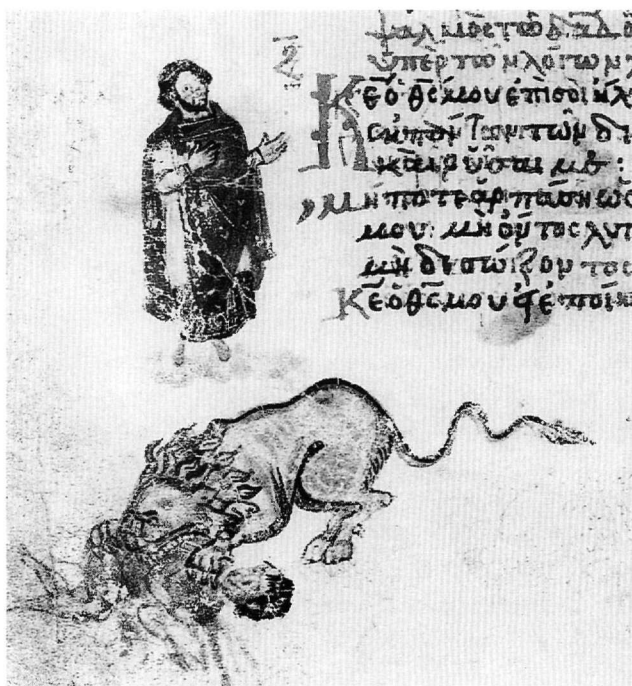 ψαλμὸς τοῦ δ̅α̅δ
ὑπὲρ τῶν λόγων
Κ̅ε̅ ὁ θ̅ς̅ μου ἐπὶ σοὶ ἤλ
τῶν δι
καὶ ῥῦσαί με:
μήποτε ἁρπάσῃ ὡς
μου· μὴ ὄντος λυτ
μηδὲ σώζοντος
Κ̅ε̅ ὁ θ̅ς̅ μου εἰ ἐποίη